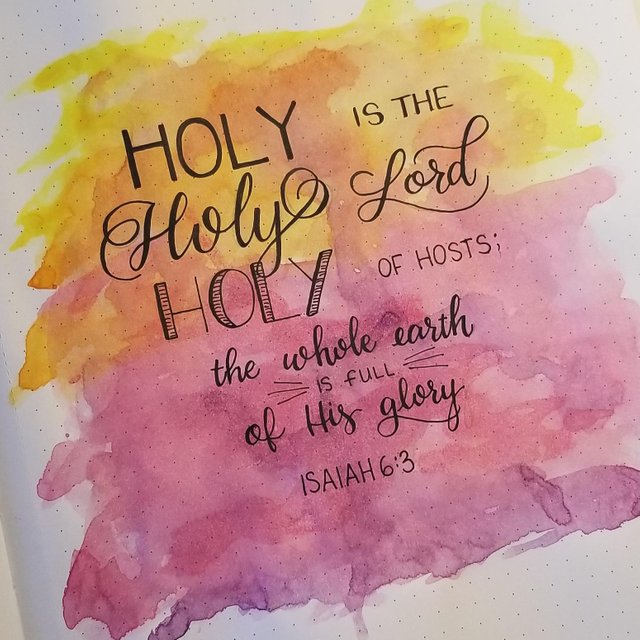 HOLY
Holy
HOLY
IS THE
Lord
OF HOSTS;
the whole earth
IS FULL
of His glory
ISAIAH 6:3